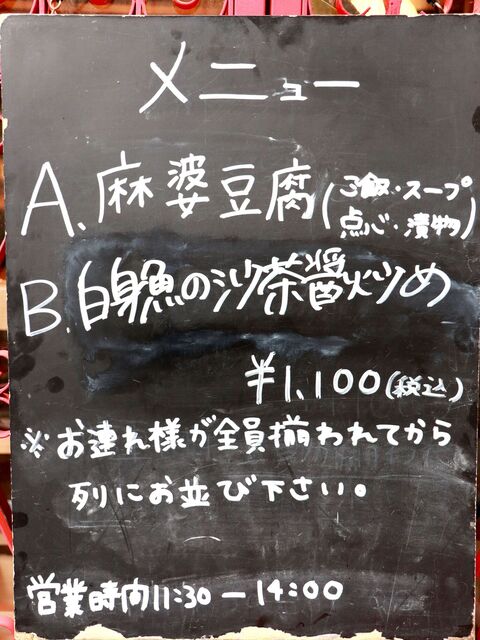 メニュー
A. 麻婆豆腐(ご飯・スープ
点心・漬物)
B. 白身魚の沙茶醤炒め
¥1,100(税込)
※お連れ様が全員揃われてから
列にお並び下さい。
営業時間11:30-14:00